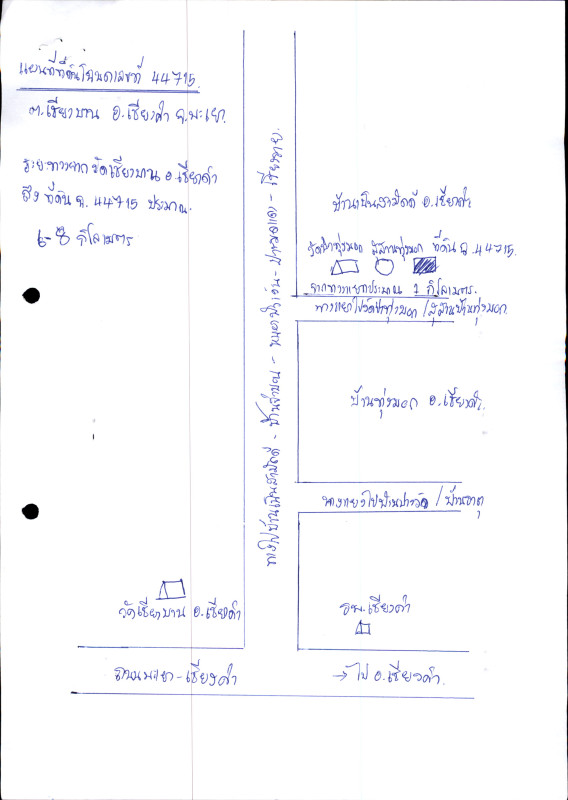 แผนที่ที่ดินโฉนดเลขที่ 44715.
ต.เชียงบาน อ.เชียงคำ จ.พะเยา.
ระยะทางจาก วัดเชียงบาน อ.เชียงคำ
ถึง ที่ดิน ฉ. 44715 ประมาณ.
6-8 กิโลเมตร
ทางไปบ้านเนินสามัคคี - บ้านลำบอน - - เชียงราย.
บ้านเนินสามัคคี อ.เชียงคำ
วัดป่าทุ่งมอก สุสานทุ่งมอก ที่ดิน ฉ. 44715.
จากทางแยกประมาณ 1 กิโลเมตร.
ทางแยกไปวัดป่าทุ่งมอก / สุสานบ้านทุ่งมอก.
บ้านทุ่งมอก อ.เชียงคำ.
ทางแยกไปบ้านปางวัว / บ้านธาตุ
วัดเชียงบาน อ.เชียงคำ
รพ.เชียงคำ
ถนนพะเยา - เชียงคำ
→ ไป อ.เชียงคำ.